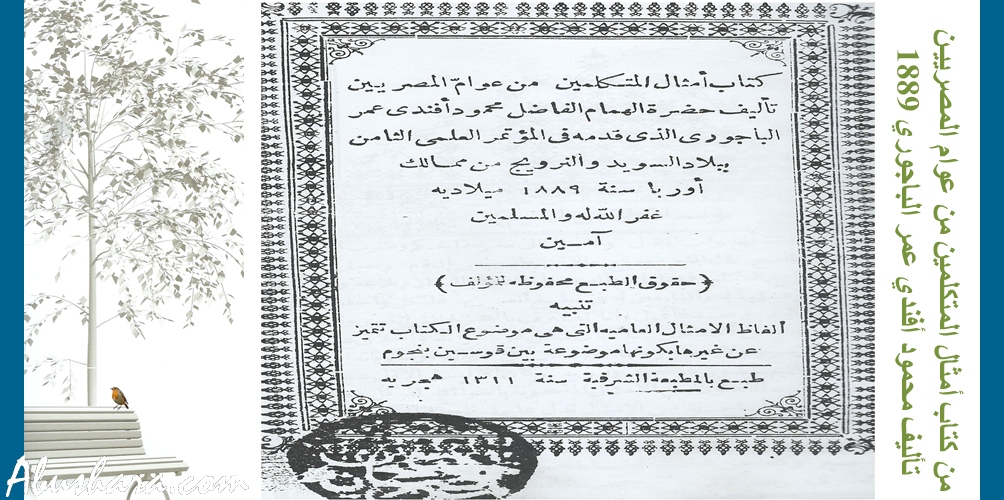 كتاب أمثال المتكلمين من عوام المصريين
تأليف حضرة الهمام الفاضل محمود أفندى عمر
الباجورى الذى قدمه فى المؤتمر العلمى الثامن
ببلاد السويد والنرويج من ممالك
أوربا سنة ١٨٨٩ ميلاديه
غفر الله له والمسلمين
آمين
﴿حقوق الطبع محفوظه للمؤلف﴾
تنبيه
ألفاظ الامثال العاميه التى هى موضوع الكتاب تتميز
عن غيرها بكونها موضوعة بين قوسين بنجوم
طبع بالمطبعة الشرفية سنة ١٣١١ هجريه
من كتاب أمثال المتكلمين من عوام المصريين
تأليف محمود أفندي عمر الباجوري 1889
Abushara.com